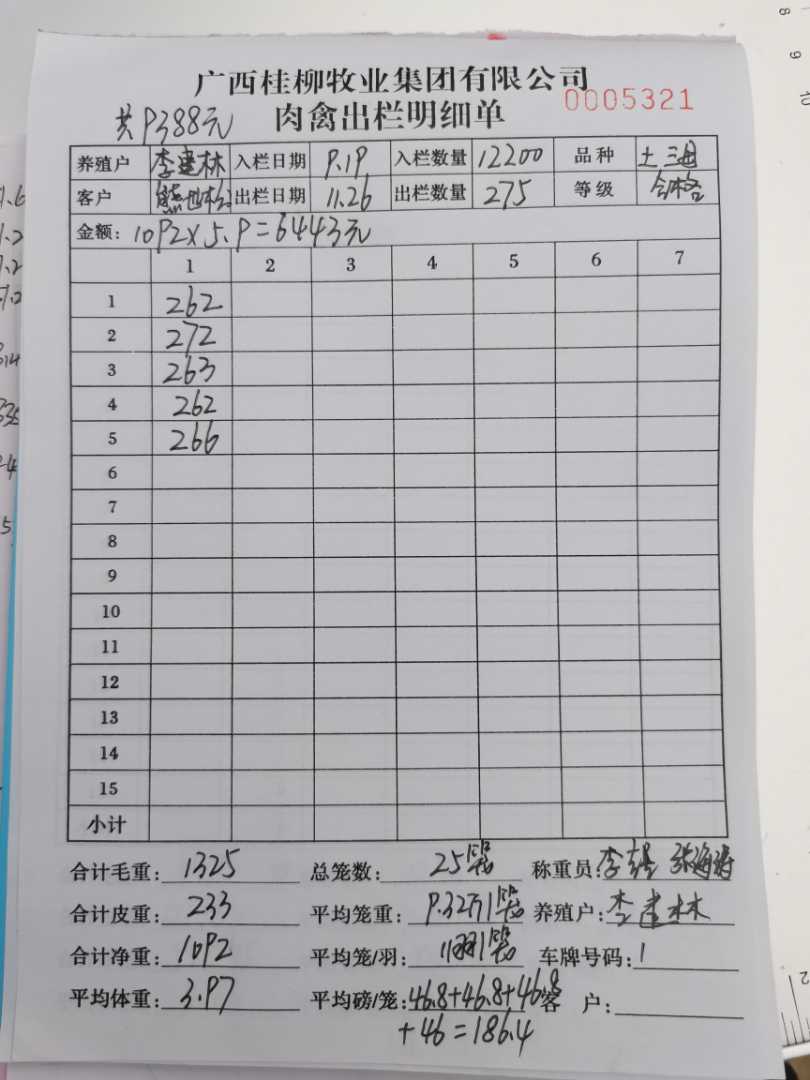 广西桂柳牧业集团有限公司
肉禽出栏明细单 0005321
共9388元
养殖户 李建林 入栏日期 9.19 入栏数量 12200 品种 土三母
客户 出栏日期 11.26 出栏数量 275 等级 合格
金额: 1092×5.9=6443元
1 2 3 4 5 6 7
1 262
2 272
3 263
4 262
5 266
6
7
8
9
10
11
12
13
14
15
小计
合计毛重: 1325 总笼数: 25笼 称重员: 李 张海涛
合计皮重: 233 平均笼重: 9.32斤/笼 养殖户: 李建林
合计净重: 1092 平均笼/羽: 11羽/笼 车牌号码: 1
平均体重: 3.97 平均磅/笼: 46.8+46.8+46.8 客 户:
+46=186.4
1.6
1.2
1.2